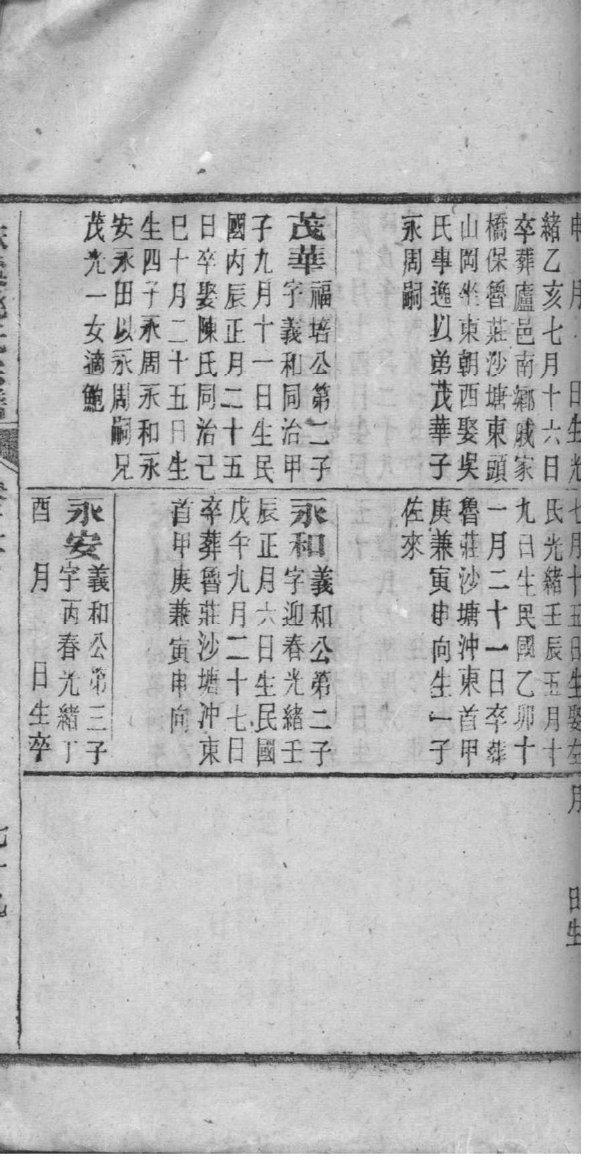 緒乙亥七月十六日
卒葬廬邑南鄉戚家
橋保魯莊沙塘東頭
山岡坐東朝西娶吳
氏事逸以弟茂華子
永周嗣
茂華
福培公第二子
字義和同治甲
子九月十一日生民
國丙辰正月二十五
日卒娶陳氏同治己
巳十月二十五日生
生四子永周永和永
安永田以永周嗣兄
茂光一女適鮑
七月十五日生娶左
氏光緒壬辰五月十
九日生民國乙卯十
一月二十一日卒葬
魯莊沙塘沖東首甲
庚兼寅申向生一子
佐來
永和
義和公第二子
字迎春光緒壬
辰正月六日生民國
戊午九月二十七日
卒葬魯莊沙塘沖東
首甲庚兼寅申向
永安
義和公第三子
字丙春光緒丁
酉 月 日生卒
月 日生